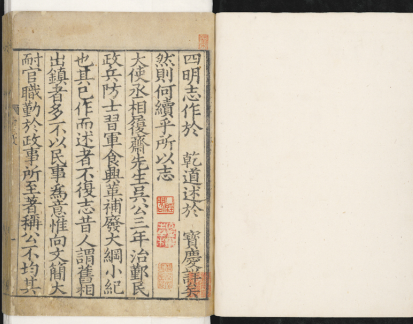 四明志作於 乾道述於 寶慶詳矣
然則何續乎所以志
大使丞相履齋先生吳公三年治鄞民
政兵防士習軍食興革補廢大綱小紀
也其已作而述者不復志昔人謂舊相
出鎮者多不以民事為意惟向文簡大
耐官職勤於政事所至著稱公不均其